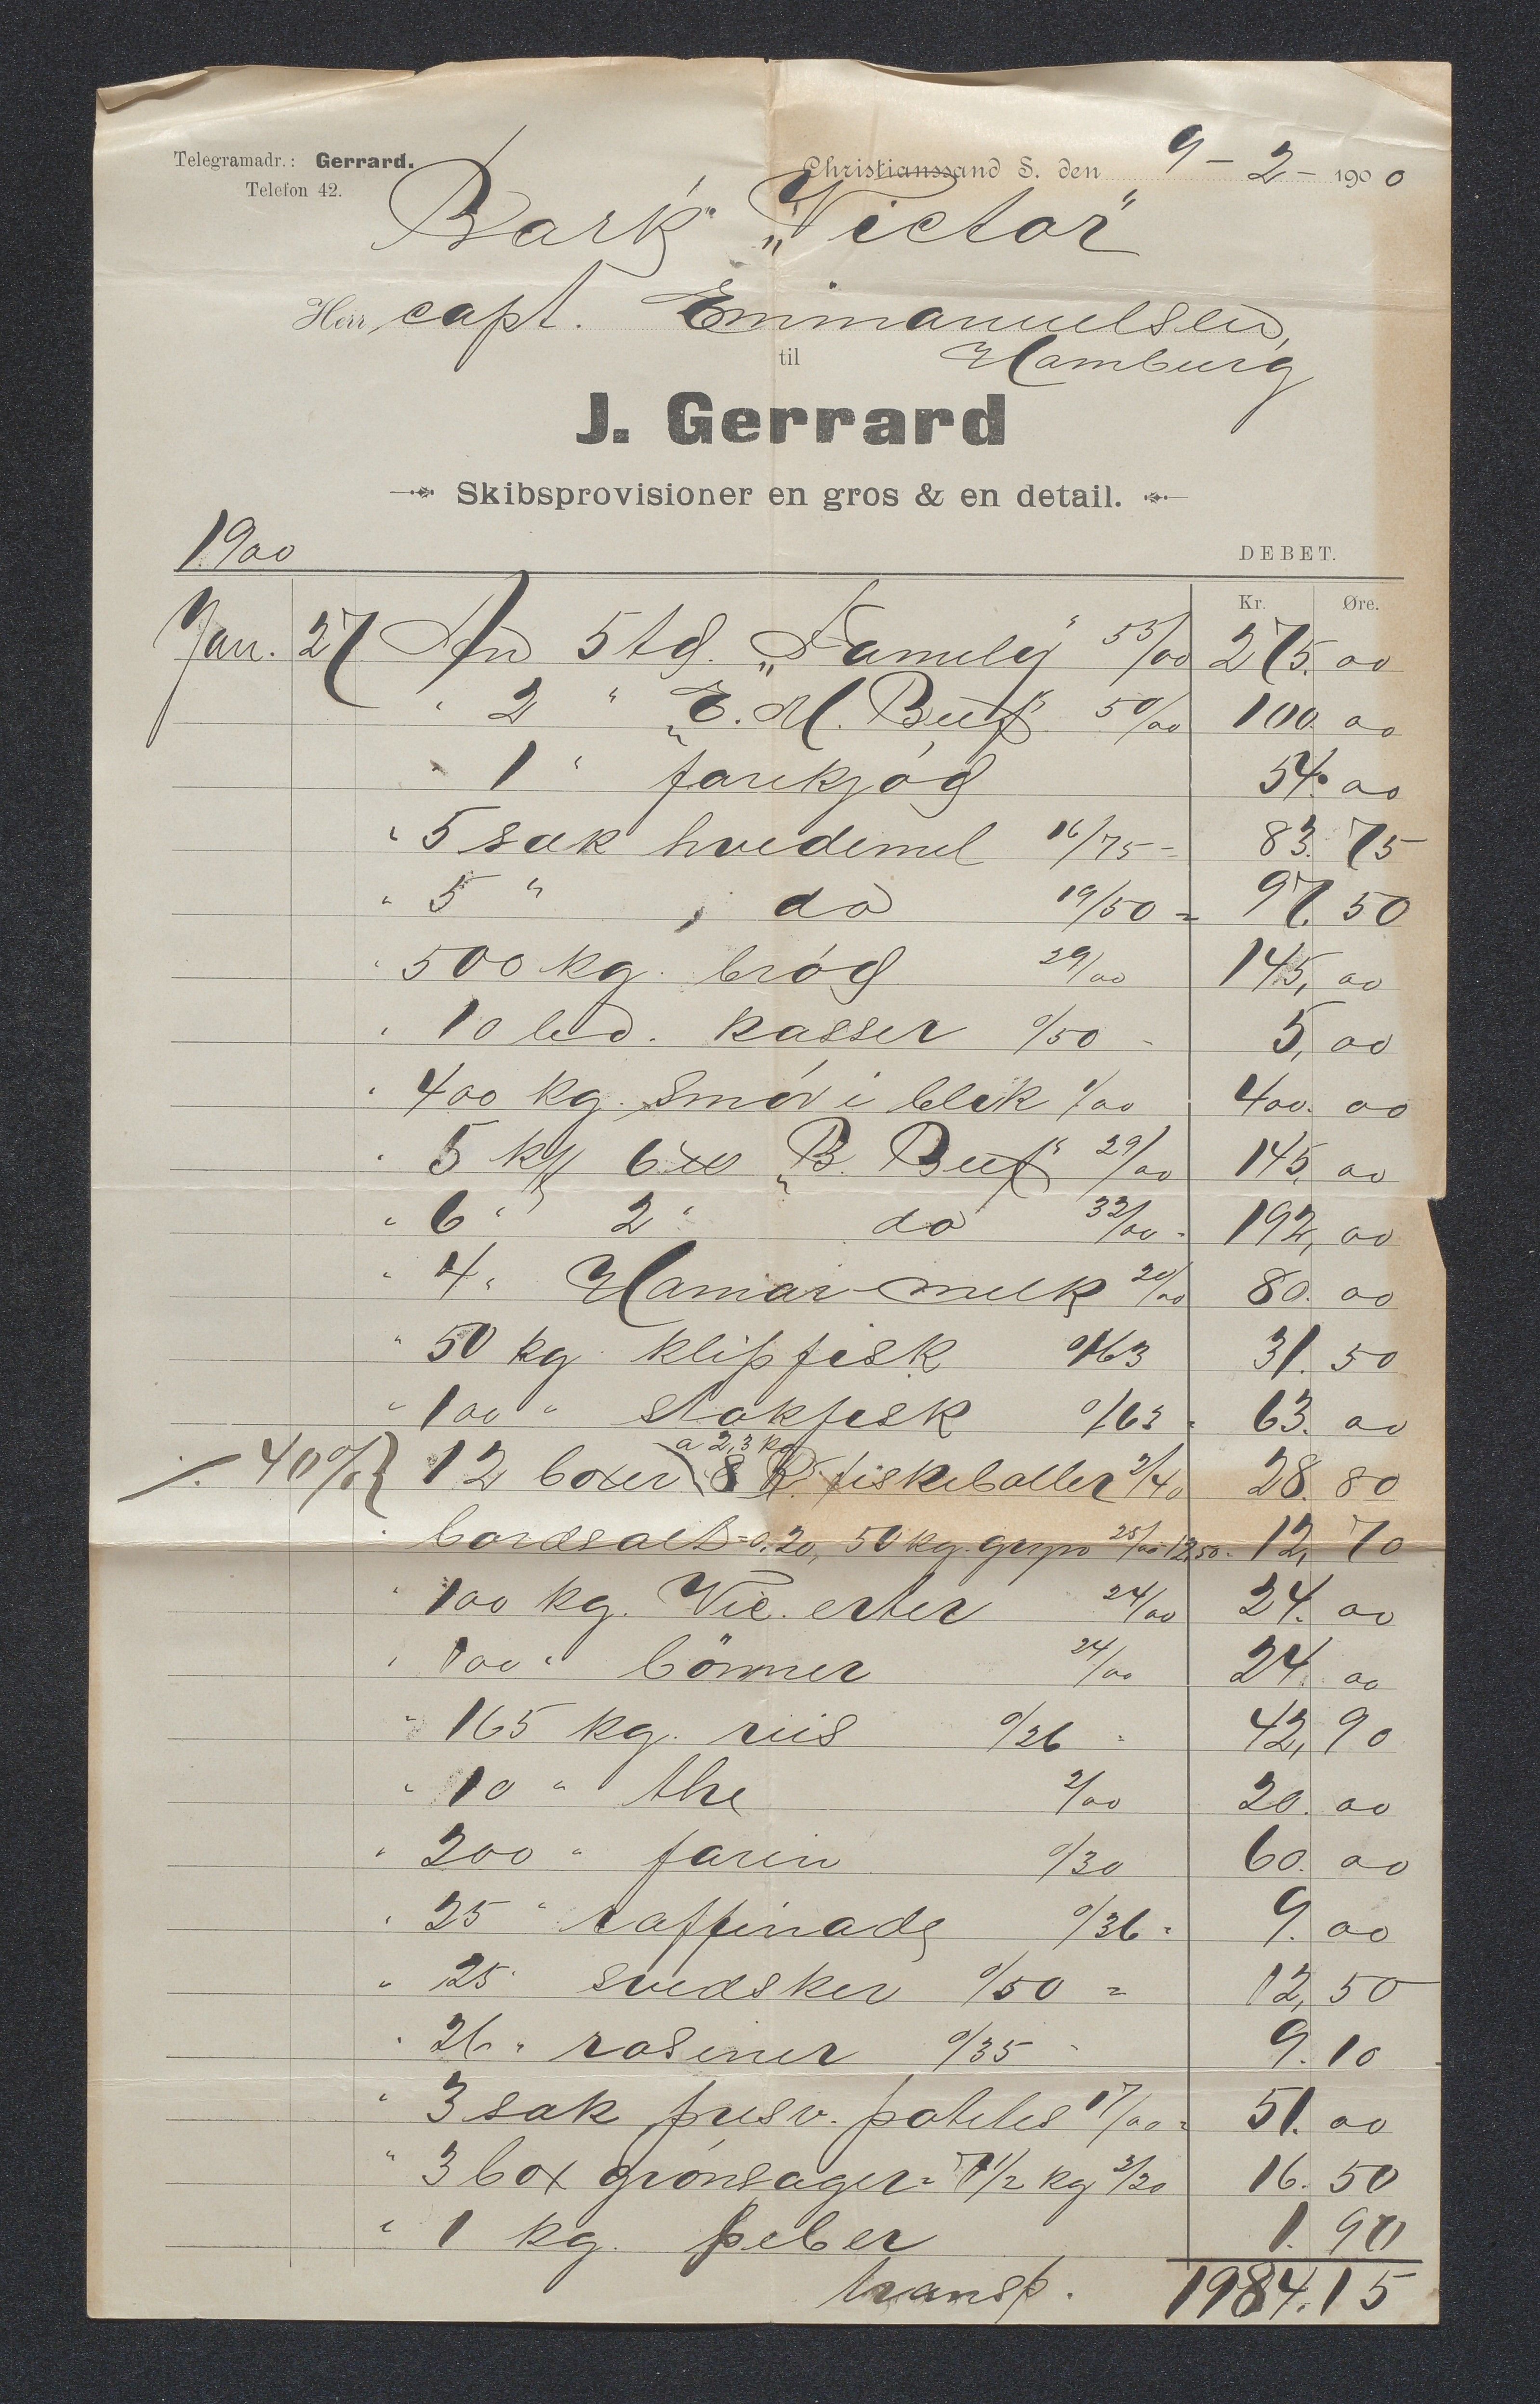 Telegramadr.: Gerrard.
Telefon 42.
Christianssand S. den 9 - 2 - 1900
Bark „Victor"
Herr capt. Emmanuelsen,
til Hamburg
J. Gerrard
Skibsprovisioner en gros & en detail.
1900
DEBET.
Kr. Øre.
Jan. 27 An 5 td. „Family" 55/00 275. 00
" 2 " „E. M. Beef" 50/00 100. 00
" 1 " farekjød 54. 00
" 5 sæk hvedemel 16/75 - 83. 75
" 5 " do 19/50 = 97. 50
" 500 kg. brød 29/00 145, 00
" 10 kasser 0/50 - 5, 00
" 400 kg. smør i blik 1/00 400. 00
" 5 6 „B. Beef" 29/00 145, 00
" 6 " 2 " do 32/00 - 192, 00
" 4 " Hamar melk 20/00 80. 00
" 50 kg klipfisk 0/63 31. 50
" 100 " stokfisk 0/63 = 63. 00
a 2,3 kg
÷ 40% 12 boxer 8 R. fiskeboller 2/40 28. 80
" bordsalt = 0.20, 50 kg. gryn 25/00 12.50 - 12, 70
" 100 kg. Vic. erter 24/00 24. 00
" 100 " bönner 24/00 24. 00
" 165 kg. riis 0/26 - 42, 90
" 10 " the 2/00 20. 00
" 200 " farin 0/30 60. 00
" 25 " raffinade 0/36 = 9. 00
" 25 " svedsker 0/50 = 12, 50
" 26 " rosiner 0/35 - 9. 10
" 3 sæk presv. potetes 17/00 = 51. 00
" 3 box grønsager = 7 1/2 kg 2/20 16. 50
" 1 kg. peber 1. 90
transp. 1984.15